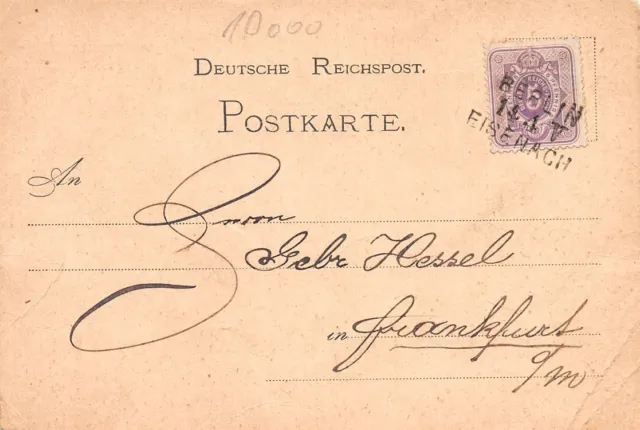 10000
DEUTSCHE REICHSPOST.
POSTKARTE.
5
BERLIN
14.1. V
EISENACH
An
Gebr Hessel
in Frankfurt
a/m